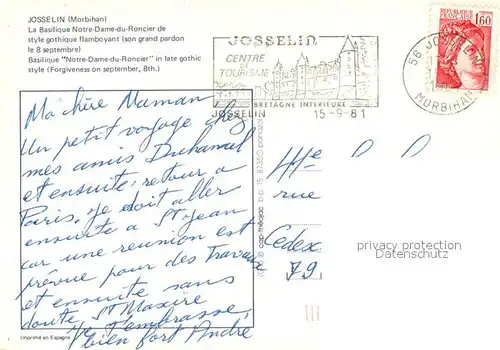 JOSSELIN (Morbihan)
La Basilique Notre-Dame-du-Roncier de
style gothique flamboyant (son grand pardon
le 8 septembre)
Basilique "Notre-Dame-du-Roncier" in late gothic
style (Forgiveness on september, 8th.)
JOSSELIN
CENTRE
DE
TOURISME
BRETAGNE INTERIEURE
JOSSELIN 15-9-81
56 JOSSELIN
MORBIHAN
1,60
Ma chère Maman
Un petit voyage chez
mes amis Duhamel
et ensuite, retour a
Paris. Je doit aller
ensuite a St Jean
car une reunion est
prévue pour des Travaux
et ensuite sans
doute, St Maxire
Je t'embrasse,
bien fort André
Imprimé en Espagne
Mme D D
rue
Cedex
79
privacy protection
Datenschutz